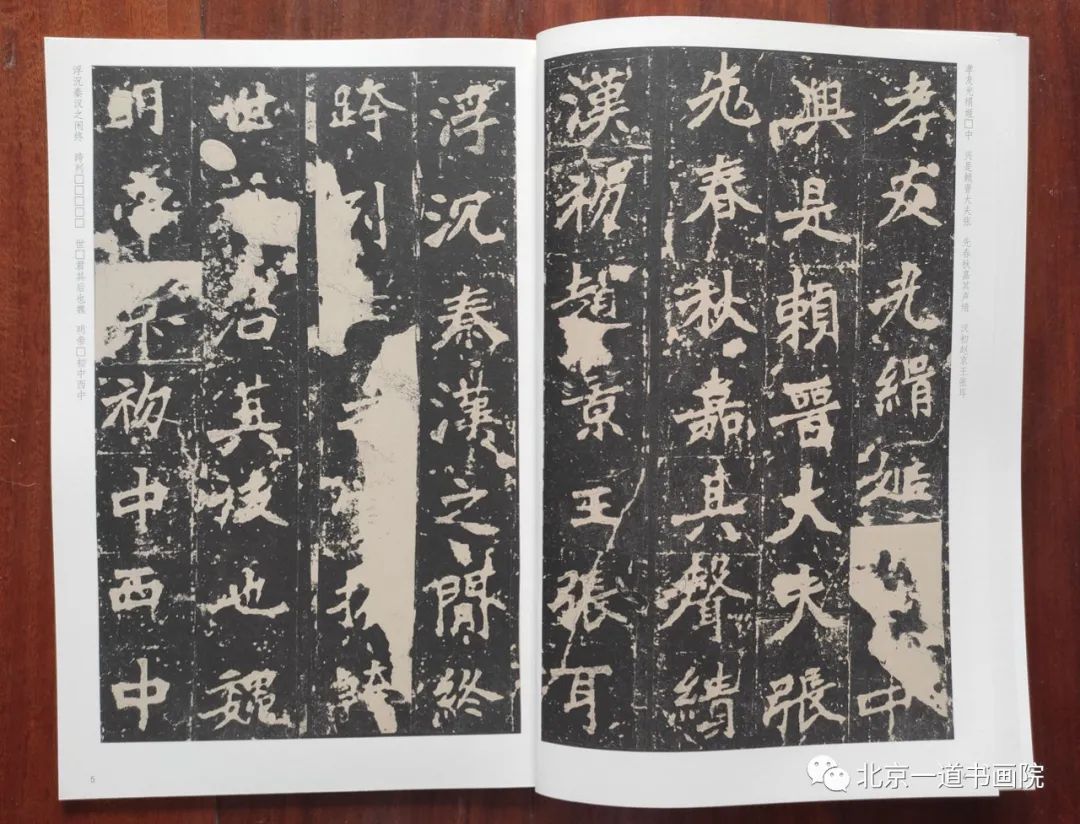 孝友光緝中
興是賴晉大夫張
先春秋嘉其聲績
漢初趙景王張耳
孝友光楫□中 兴是赖晋大夫张 先春秋嘉其声绩 汉初赵景王张耳
浮沉秦漢之間終
跨列
世君其後也魏
明帝初中西中
浮沉秦汉之间终 跨列□□□□□ 世□君其后也魏 明帝□初中西中
5
北京一道书画院